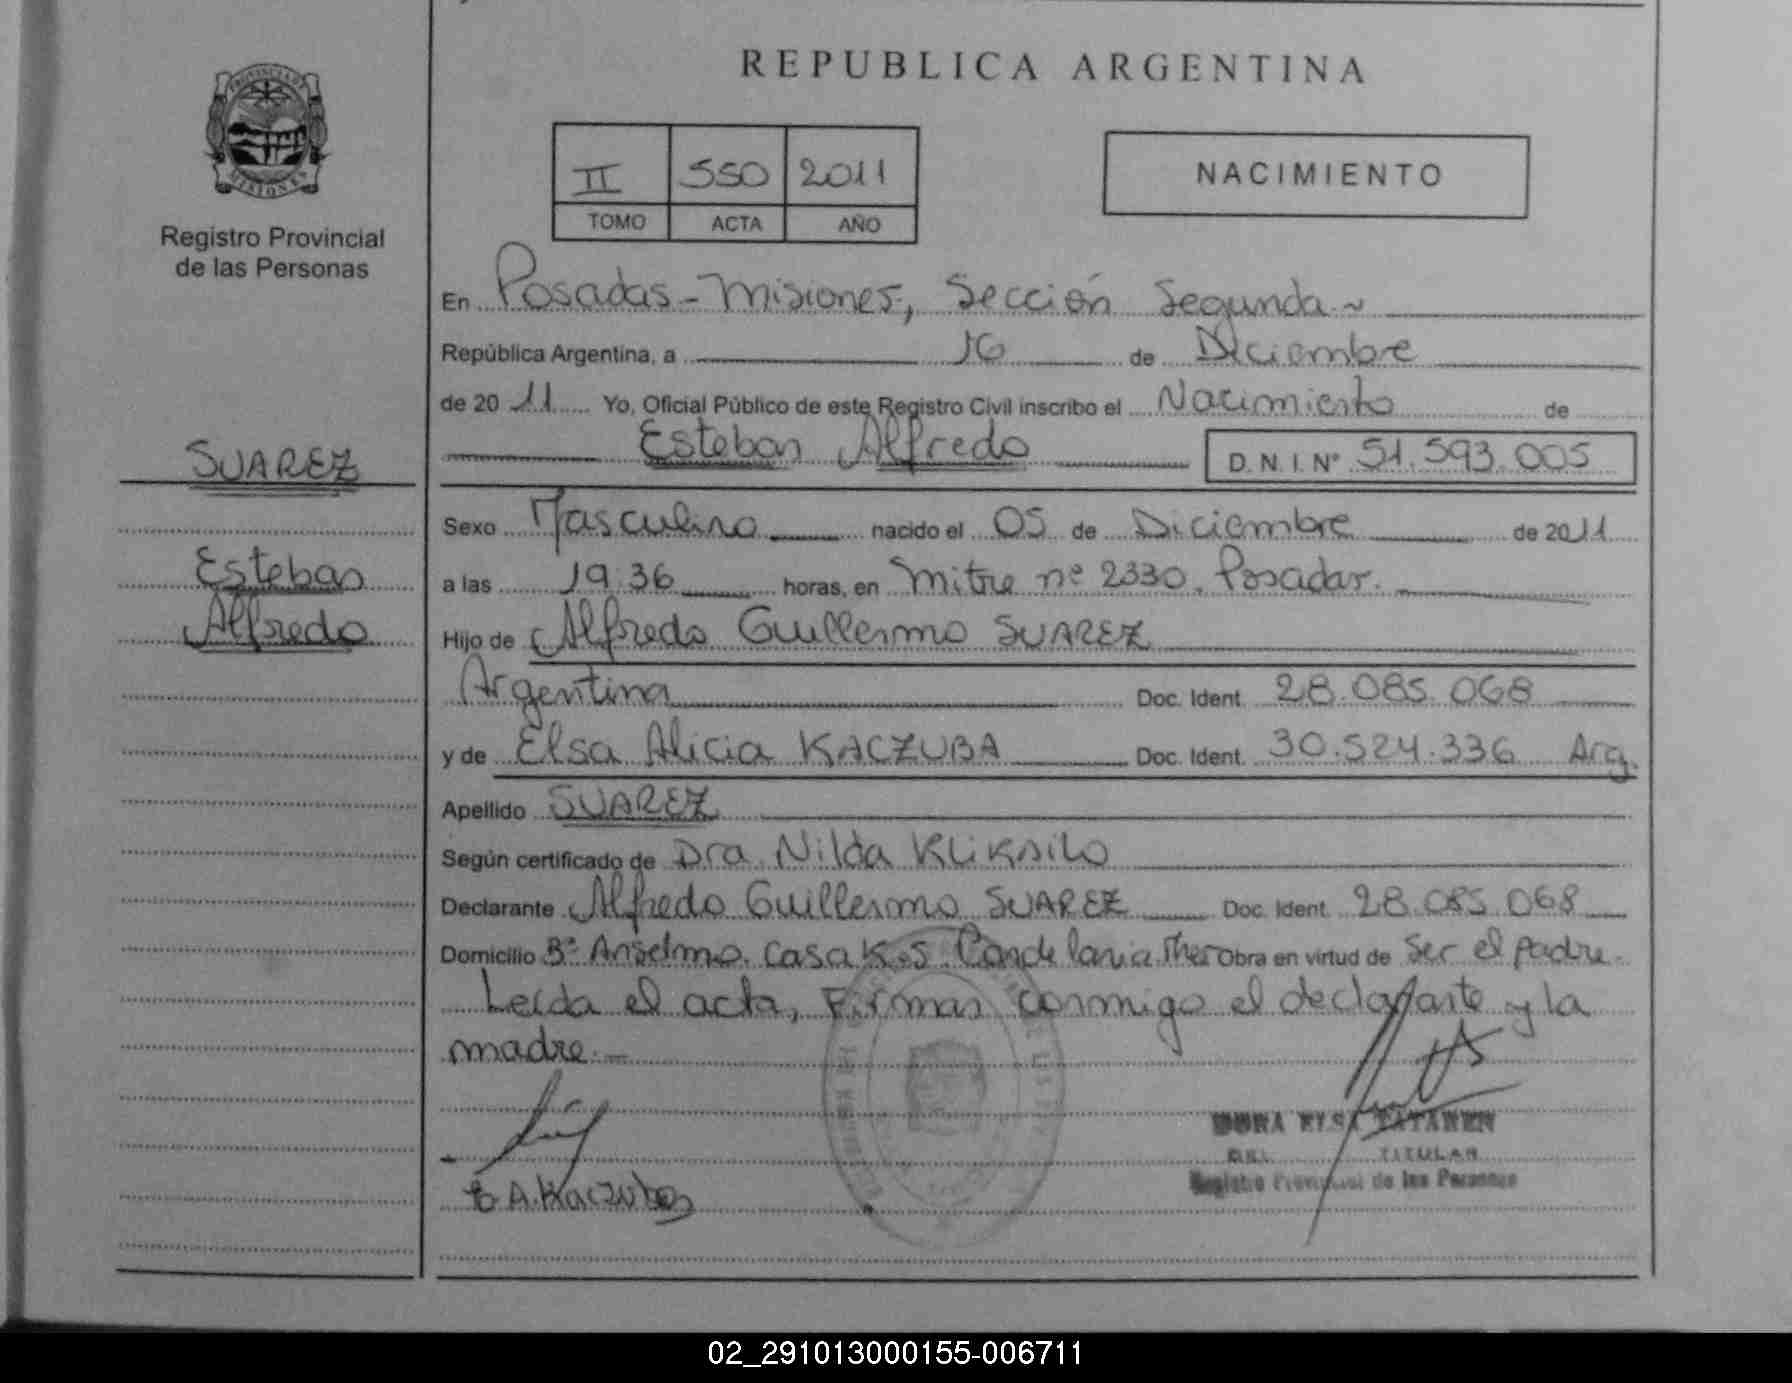 PROVINCIA DE
MISIONES
Registro Provincial
de las Personas
SUAREZ
Esteban
Alfredo
REPUBLICA ARGENTINA
II 550 2011
TOMO ACTA AÑO
NACIMIENTO
En Posadas - Misiones, Sección Segunda ~
República Argentina, a 16 de Diciembre
de 2011 Yo, Oficial Público de este Registro Civil inscribo el Nacimiento de
Esteban Alfredo D.N.I. Nº 51.593.005
Sexo Masculino nacido el 05 de Diciembre de 2011
a las 19:36 horas, en Mitre nº 2330, Posadas.
Hijo de Alfredo Guillermo SUAREZ
Argentina Doc. Ident. 28.085.068
y de Elsa Alicia KACZUBA Doc. Ident. 30.524.336 Arg.
Apellido SUAREZ
Según certificado de Dra. Nilda
Declarante Alfredo Guillermo SUAREZ Doc. Ident. 28.085.068
Domicilio Bº Anselmo. Casa K-5 Candelaria Obra en virtud de ser el padre.
Leída el acta, Firman conmigo el declarante y la
madre.-
E A. Kaczuba
TITULAR
Registro Provincial de las Personas
02_291013000155-006711